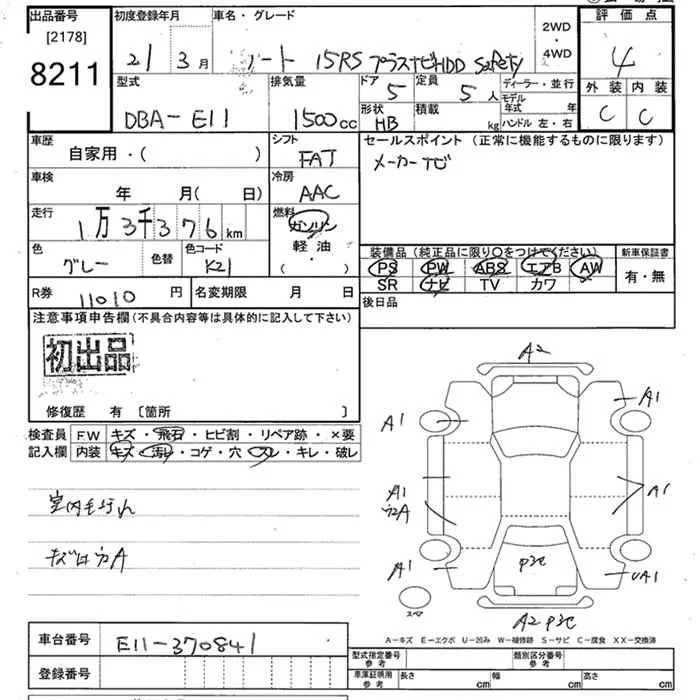 出品番号 初度登録年月 車名・グレード 2WD・4WD 評価点
[2178]
8211
21年 3月 ノート 15RS プラスナビHDD Safety
4
外装 内装
C C
型式 排気量 ドア 定員 ディーラー・並行
DBA-E11 1500cc 5 5人 モデル年式 年
形状 積載 ハンドル 左・右
HB kg
車歴 シフト セールスポイント (正常に機能するものに限ります)
自家用・( ) FAT メーカーナビ
車検 冷房
年 月(日) AAC
走行 燃料
1万3千376km ガソリン
軽油
・( )
色 色替 色コード
グレー K21
装備品(純正品に限り○をつけてください) 新車保証書
PS PW ABS エアB AW 有・無
SR ナビ TV カワ
R券 11010円 名変期限 月 日 後日品
注意事項申告欄(不具合内容等は具体的に記入して下さい)
初出品
修復歴 有 [箇所 ]
検査員 FW キズ・飛石・ヒビ割・リペア跡・×要
記入欄 内装 キズ・汚レ・コゲ・穴・スレ・キレ・破レ
A2
A1
A1
A1
A1
A1
UA1
P3C
スペア
A2 P3C
A-キズ E-エクボ U-凹み W-補修跡 S-サビ C-腐食 XX-交換済
車台番号 E11-370841
登録番号
型式指定番号 参考 類別区分番号 参考
車庫証明用 参考 長さ cm 幅 cm 高さ cm